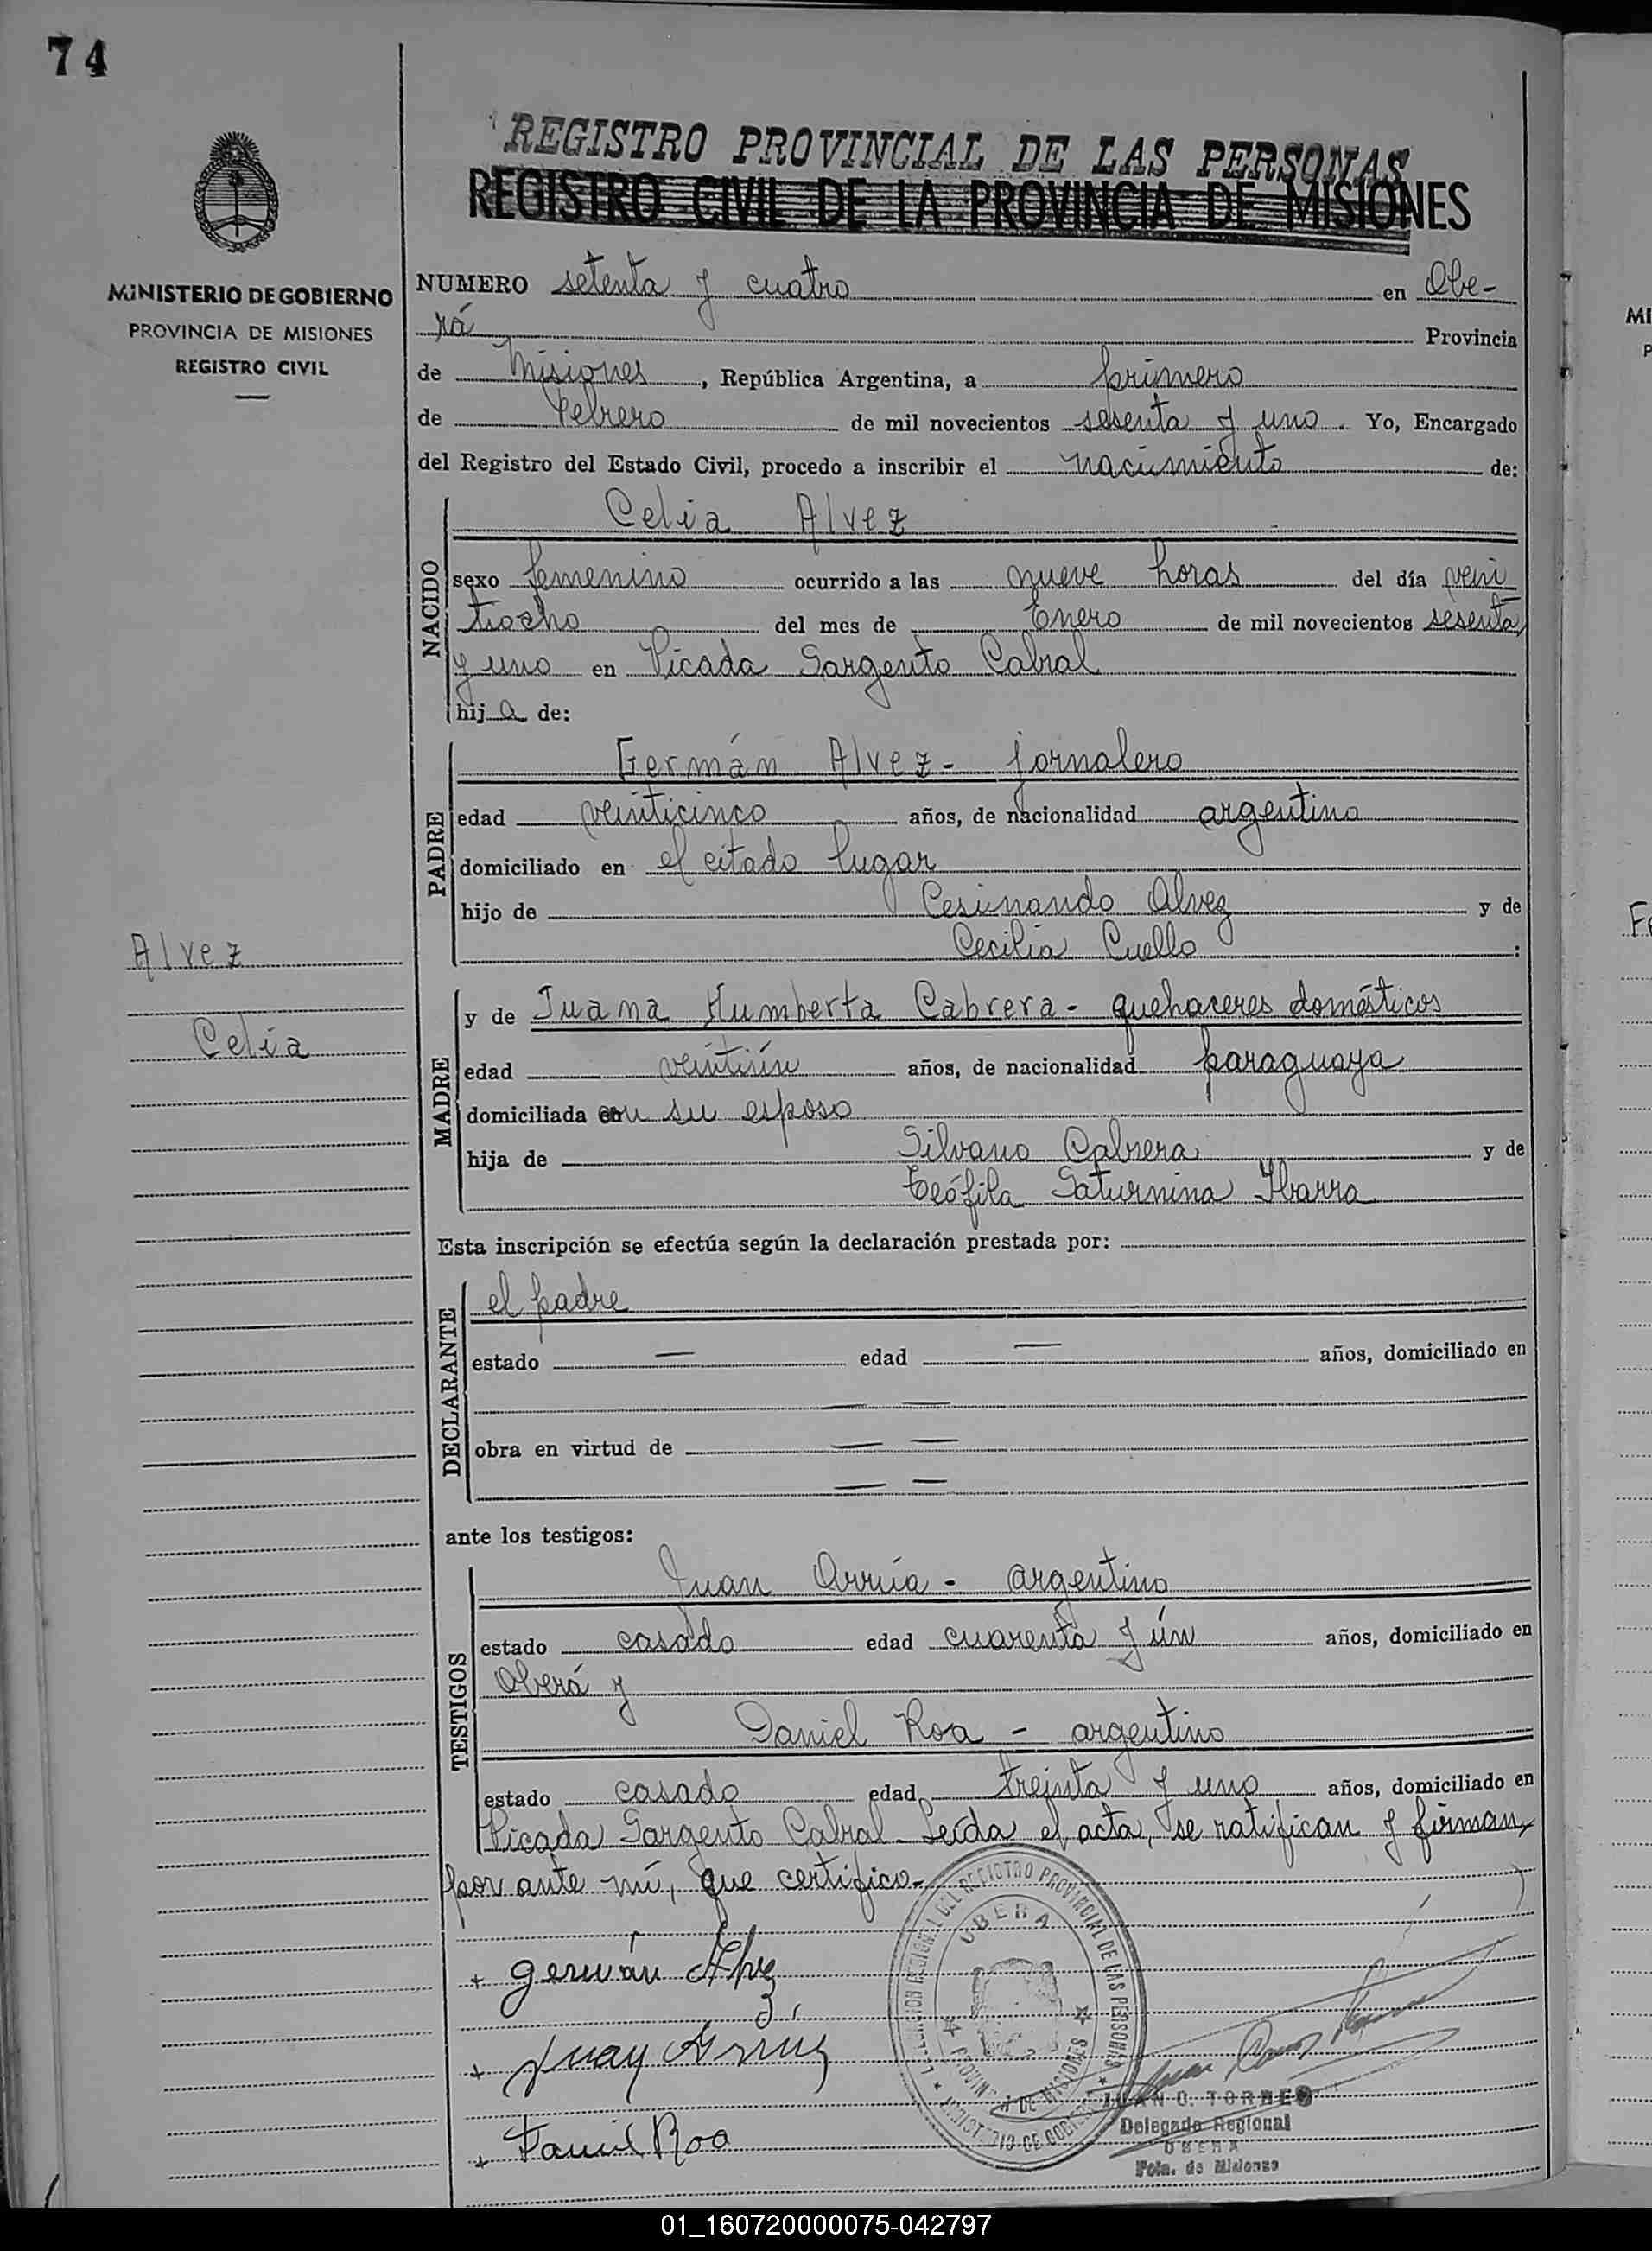 74
REGISTRO PROVINCIAL DE LAS PERSONAS
REGISTRO CIVIL DE LA PROVINCIA DE MISIONES
MINISTERIO DE GOBIERNO
PROVINCIA DE MISIONES
REGISTRO CIVIL
NUMERO setenta y cuatro en Obe-
rá Provincia
de Misiones, República Argentina, a primero
de Febrero de mil novecientos sesenta y uno. Yo, Encargado
del Registro del Estado Civil, procedo a inscribir el nacimiento de:
NACIDO
Celia Alvez
sexo femenino ocurrido a las nueve horas del día vein
tiocho del mes de Enero de mil novecientos sesenta
y uno en Picada Sargento Cabral
hija de:
PADRE
Germán Alvez - jornalero
edad veinticinco años, de nacionalidad argentina
domiciliado en el citado lugar
hijo de Cesinando Alvez y de
Cecilia Cuello :
Alvez
Celia
MADRE
y de Juana Humberta Cabrera - quehaceres domésticos
edad veintiún años, de nacionalidad paraguaya
domiciliada con su esposo
hija de Silvano Cabrera y de
Teófila Saturnina Ibarra
Esta inscripción se efectúa según la declaración prestada por:
DECLARANTE
el padre
estado — edad — años, domiciliado en
— —
obra en virtud de — —
— —
ante los testigos:
TESTIGOS
Juan Arrúa - argentino
estado casado edad cuarenta y ún años, domiciliado en
Oberá y
Daniel Roa - argentino
estado casado edad treinta y uno años, domiciliado en
Picada Sargento Cabral - Leída el acta, se ratifican y firman,
por ante mí, que certifico.-
+ germán Alvez
+ Juan Arrúa
+ Daniel Roa
DEL REGISTRO PROVINCIAL DE LAS PERSONAS
OBERA
PROVINCIA DE MISIONES
JUAN C. TORRES
Delegado Regional
OBERA
Pcia. de Misiones
01_160720000075-042797